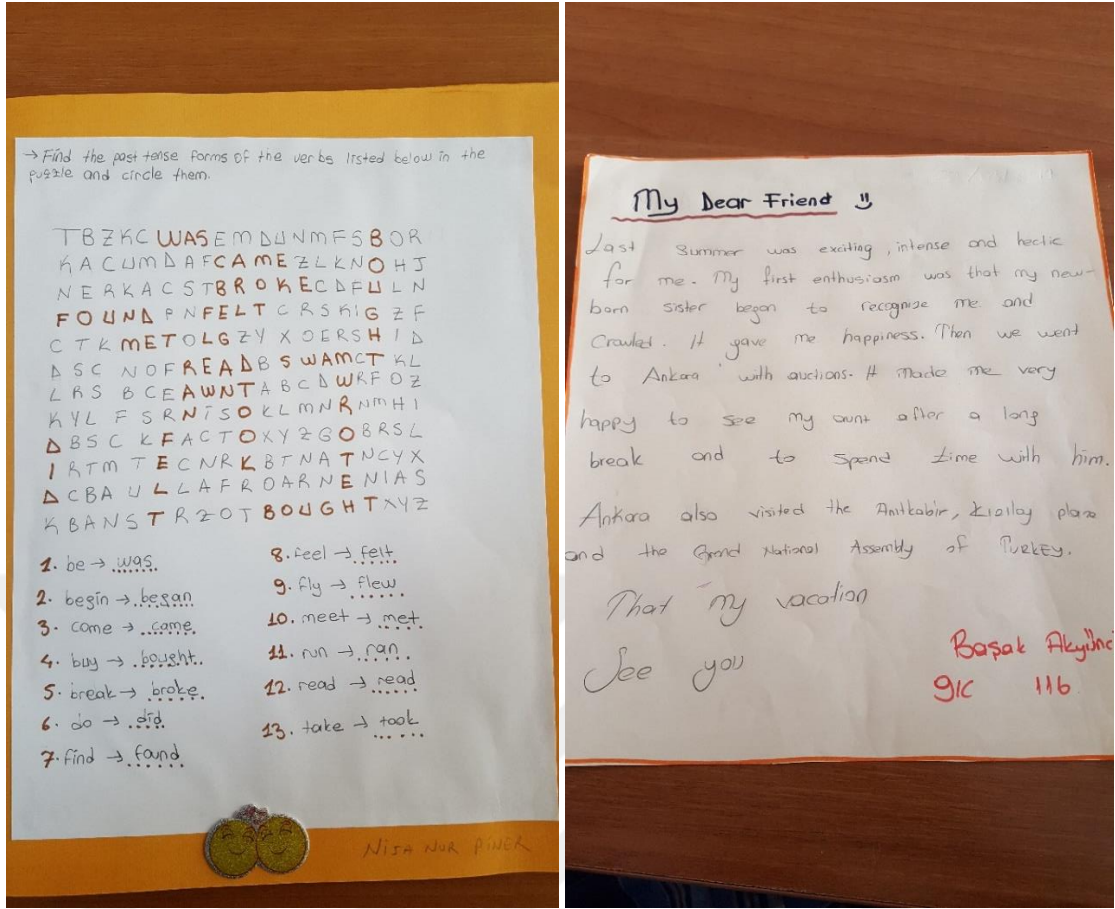 → Find the past tense forms of the verbs listed below in the
puzzle and circle them.
TBZKC WASEMDUNMFSBOR
KACUMDAFCAMEZLKNOHJ
NERKACSTBROKECDFULN
FOUNDPNFELTCRSKIGZF
CTKMETOLGZYXOERSHID
DSCNOFREADBSWAMCTKL
LRSBCEAWNTABCDWRFOZ
KYLFSRNISOKLMNRNMHI
DBSCKFACTOXYZGOBRSL
IRTMTECNRKBTNATNCYX
DCBAULLAFROARNENIAS
KBANSTRZOTBOUGHTXYZ
1. be → was
2. begin → began
3. come → came
4. buy → bought
5. break → broke
6. do → did
7. find → found
8. feel → felt
9. fly → flew
10. meet → met
11. run → ran
12. read → read
13. take → took
NISA NUR PINER
My Dear Friend
Last summer was exciting, intense and hectic
for me. My first enthusiasm was that my new-
born sister began to recognise me and
Crawled. It gave me happiness. Then we went
to Ankara with auctions. It made me very
happy to see my aunt after a long
break and to spend time with him.
Ankara also visited the Anıtkabir, Kızılay plaza
and the Grand National Assembly of TURKEY.
That my vacation
See you
Başak
91C 116